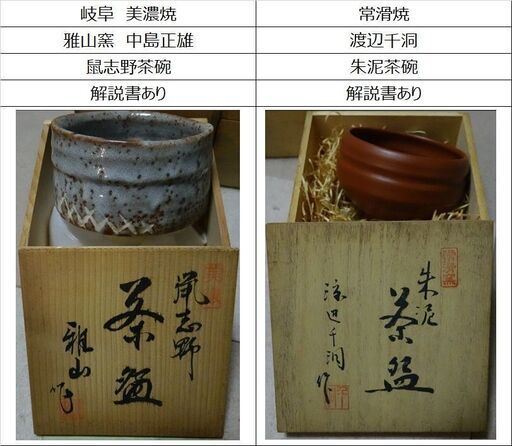 岐阜　美濃焼
雅山窯　中島正雄
鼠志野茶碗
解説書あり
常滑焼
渡辺千洞
朱泥茶碗
解説書あり
鼠志野
茶盌
雅山
朱泥
茶盌
渡辺千洞作